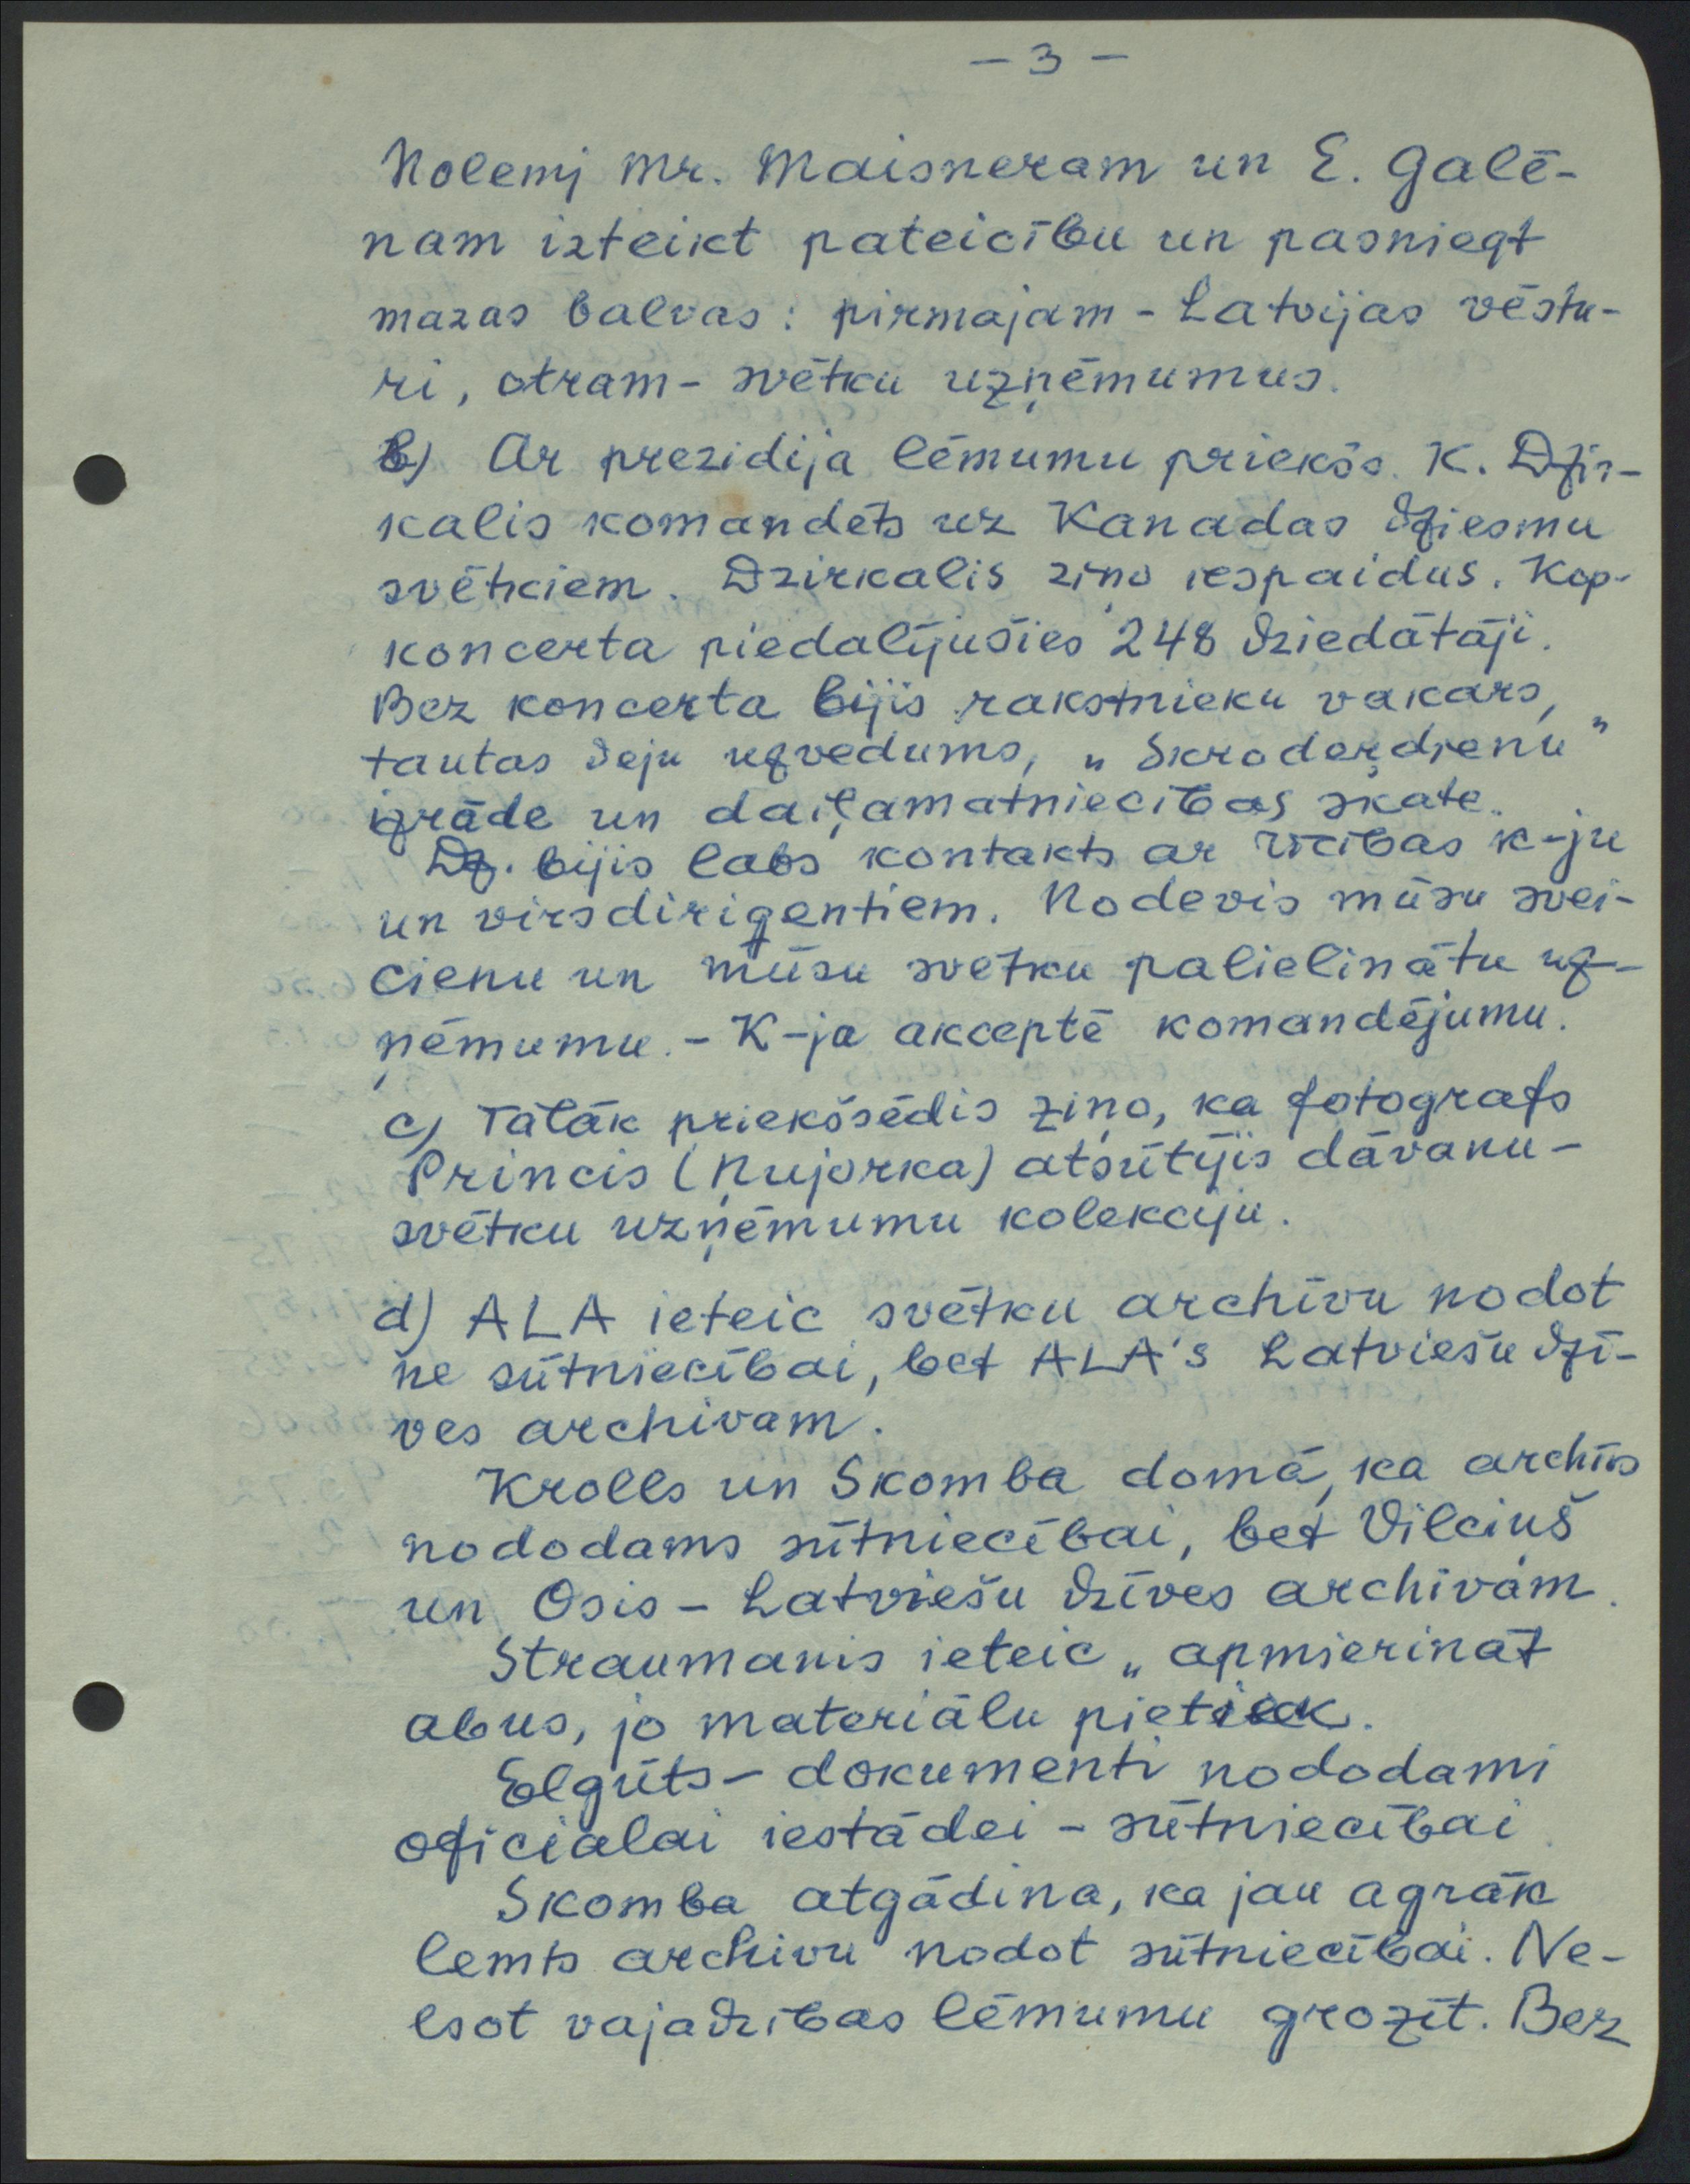 - 3 -
Nolemj Mr. Maisneram un E. Galē-
nam izteikt pateicību un pasniegt
mazas balvas: pirmajam - Latvijas vēstu-
ri, otram - svētku uzņēmumus.
b) Ar prezidija lēmumu priekšs. K. Dzir-
kalis komandēts uz Kanadas dziesmu
svētkiem. Dzirkalis ziņo iespaidus. Kop-
koncerta piedalījušies 248 dziedātāji.
Bez koncerta bijis rakstnieku vakars,
tautas deju uzvedums, „Skroderdienu"
izrāde un daiļamatniecības skate.
Dz. bijis labs kontakts ar rīcības k-ju
un virsdiriģentiem. Nodevis mūsu svei-
cienu un mūsu svētku palielinātu uz-
ņēmumu. - K-ja akceptē komandējumu.
c) Tālāk priekšsēdis ziņo, ka fotografs
Princis (Ņujorka) atsūtījis dāvanu -
svētku uzņēmumu kolekciju.
d) ALA ieteic svētku archīvu nodot
ne sūtniecībai, bet ALA's Latviešu dzī-
ves archivam.
Krolls un Skomba domā, ka archīvs
nododams sūtniecībai, bet Vilciņš
un Osis - Latviešu dzīves archīvam.
Straumanis ieteic „apmierināt
abus, jo materiālu pietiek.
Elgūts - dokumenti nododami
oficialai iestādei - sūtniecībai
Skomba atgādina, ka jau agrāk
lemts archivu nodot sūtniecībai. Ne-
esot vajadzības lēmumu grozīt. Bez